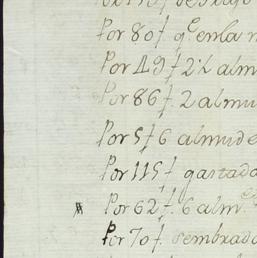 Por 80 f. q.e en la
Por 49 f. 2 ½ alm
Por 86 f. 2 almu
Por 5 f. 6 almude
Por 115 f. gastada
Por 62 f. 6 alm.
Por 70 f. sembrad